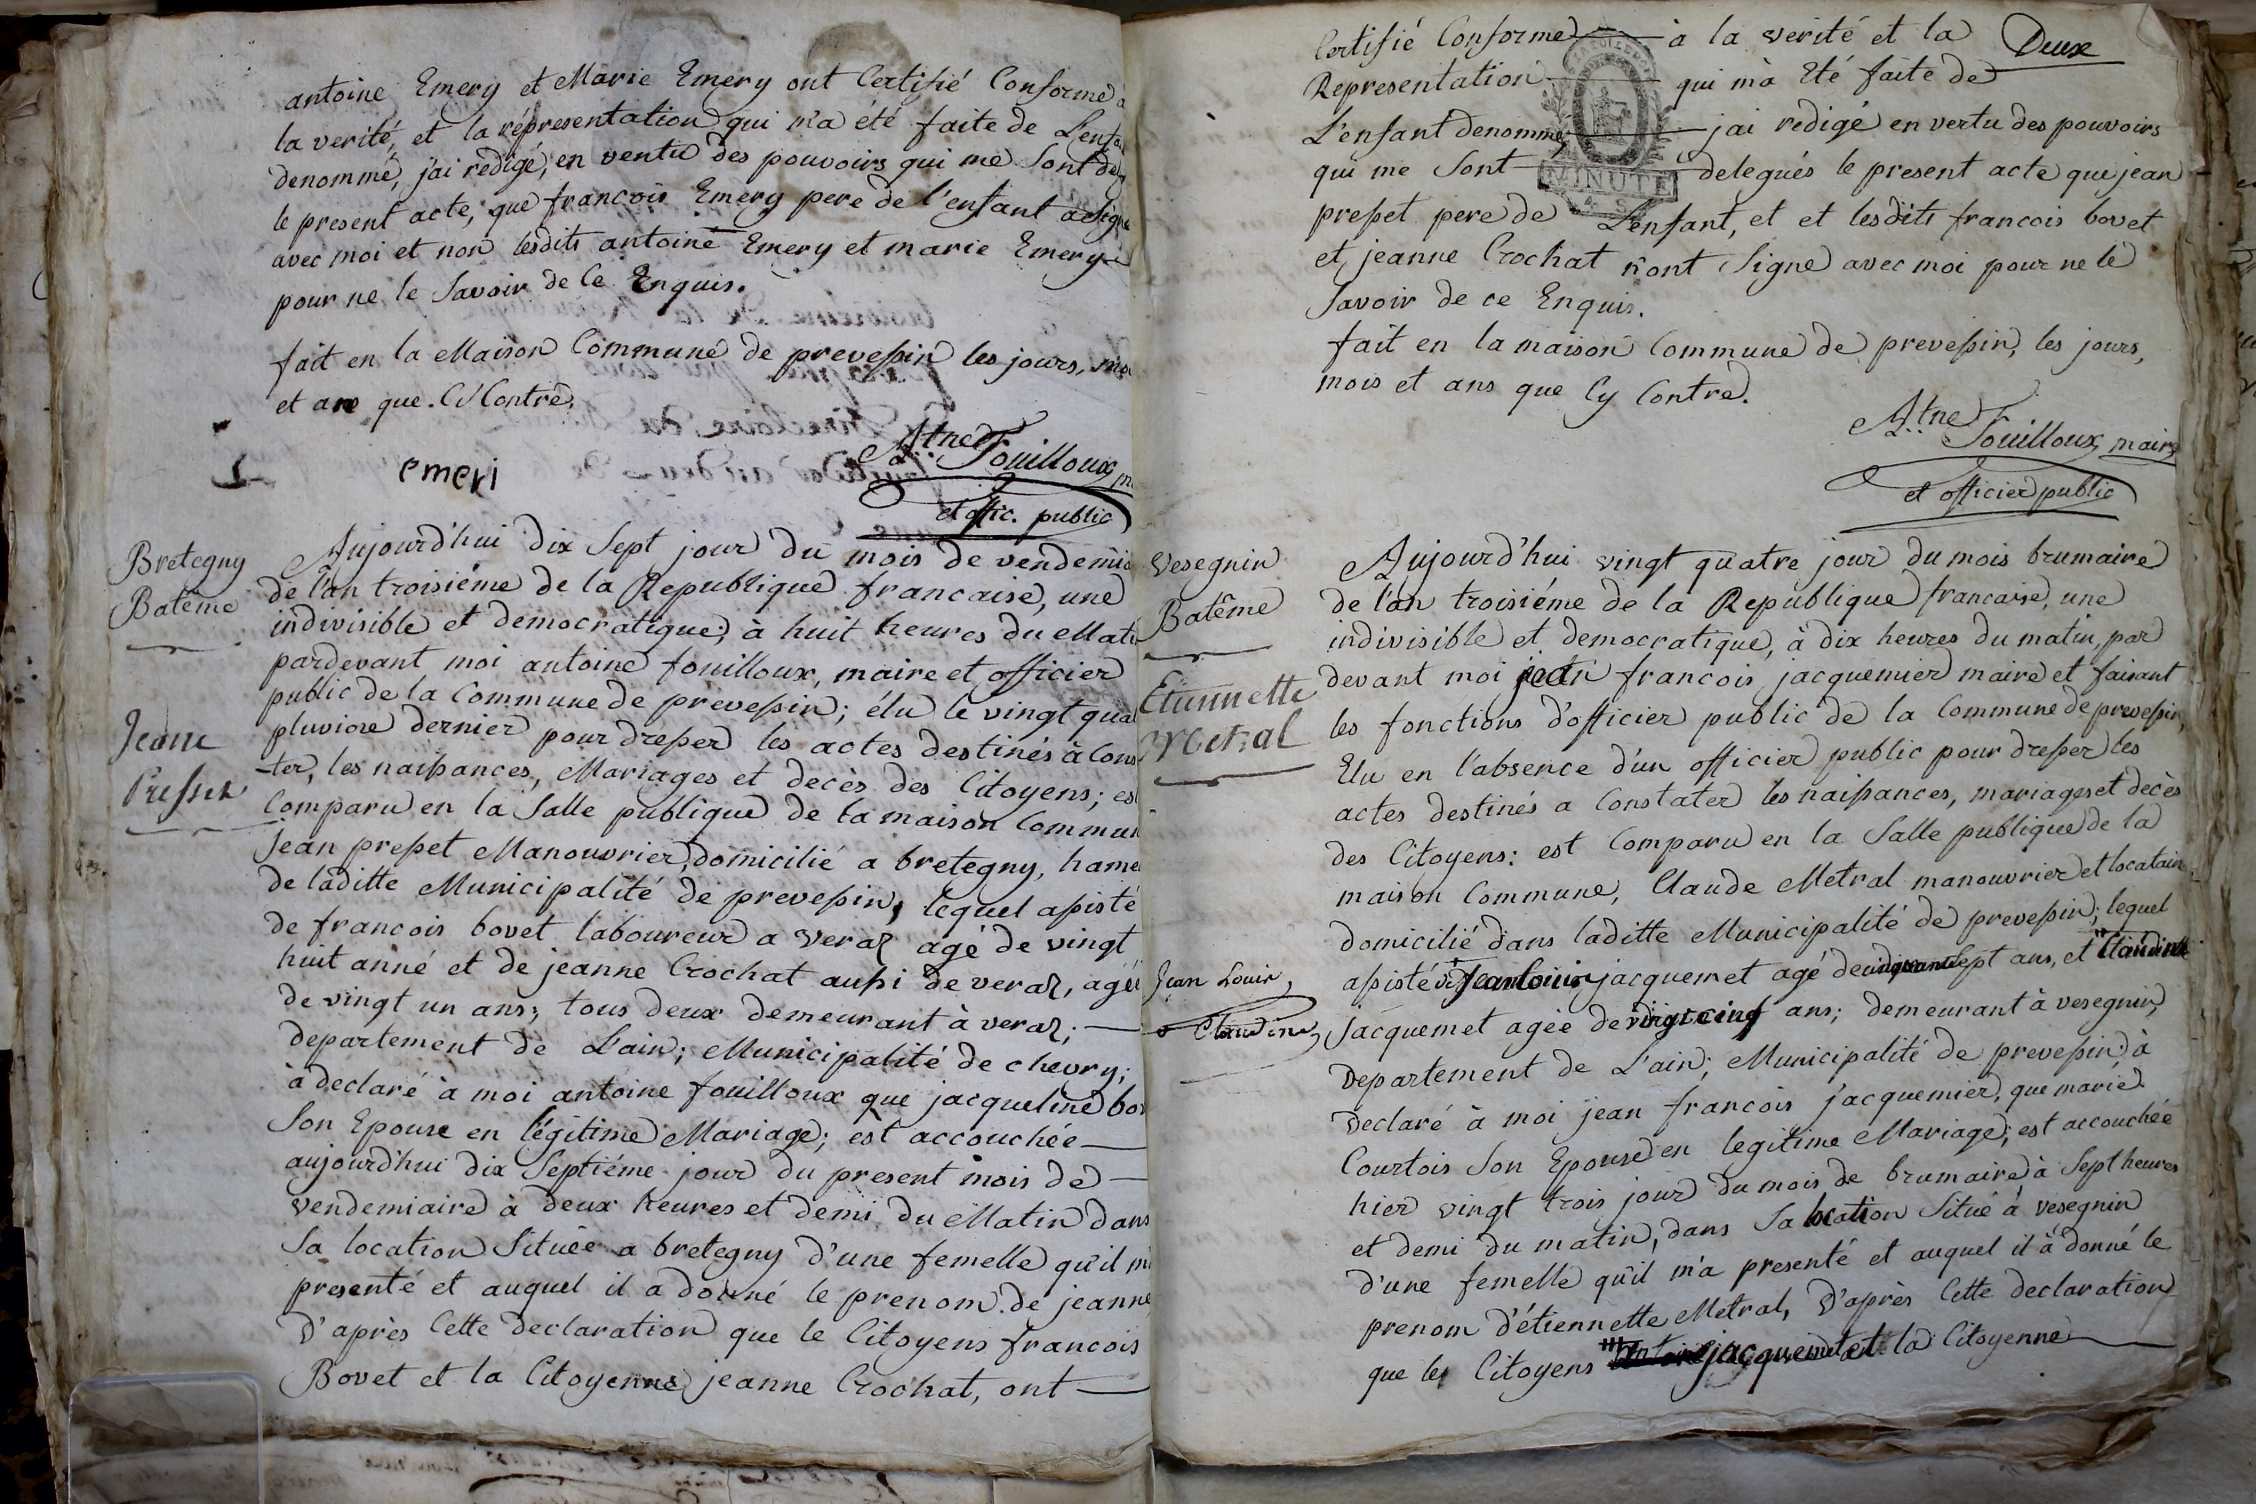 antoine Emery et Marie Emery ont Certifié Conforme à
la verité, et la répresentation qui m'a été faite de L'enfa
denommé, j'ai redigé, en vertu des pouvoirs qui me Sont
le present acte, que françois Emery pere de l'enfant a signé
avec moi et non lesdits antoine Emery et marie Emery
pour ne le Savoir de Ce Enquis.
fait en la Maison Commune de prevessin les jours, mo
et an que. Cy Contre.
Atne Fouilloux m
emeri
et offic. public
Bretegny
Batême
Jeanne
Presset
Aujourd'hui dix Sept jour du mois de vendemia
de l'an troisiéme de la Republique francaise, une
indivisible et democratique, à huit heures du Mati
pardevant moi antoine fouilloux, maire et officier
public de la Commune de prevessin; élu le vingt qua
pluviose dernier pour dresser les actes destinés à Cons
-ter, les naissances, Mariages et decès des Citoyens; est
Comparu en la Salle publique de la maison Commun
Jean presset Manouvrier, domicilié a bretegny, hame
de laditte Municipalité de prevessin, lequel assisté
de francois bovet laboureur a veraz agé de vingt
huit anné et de jeanne Crochat aussi de veraz, agée
de vingt un ans, tous deux demeurant à veraz;
departement de L'ain; Municipalité de chevry;
à declaré à moi antoine fouilloux que jacqueline bov
Son Epouse en légitime Mariage; est accouchée
aujourd'hui dix Septiéme jour du present mois de
vendemiaire à deux heures et demi du Matin dans
Sa location Située a bretegny d'une femelle qu'il m'
presenté et auquel il a donné le prenom de jeanne
D'après Cette declaration que le Citoyens francois
Bovet et la Citoyenne jeanne Crochat, ont
Deux
Certifié Conforme à la verité et la
Representation qui m'à Eté faite de
L'enfant denommé, j'ai redigé en vertu des pouvoirs
qui me Sont delegués le present acte que jean
MINUTE
presset pere de L'enfant, et et lesdits francois bovet
et jeanne Crochat n'ont Signé avec moi pour ne le
Savoir de ce Enquis.
fait en la maison Commune de prevessin, les jours,
mois et ans que Cy Contre.
Atne Fouilloux, maire
et officier public
Vesegnin
Batême
Etiennette
Metral
Jean Louis,
Claudine,
Aujourd'hui vingt quatre jour du mois brumaire
de l'an troisiéme de la Republique francaise, une
indivisible et democratique, à dix heures du matin, par
devant moi jean francois jacquemier maire et faisant
les fonctions d'officier public de la Commune de prevessin,
Elu en l'absence d'un officier public pour dresser les
actes destinés a Constater les naissances, mariages et decès
des Citoyens: est Comparu en la Salle publique de la
maison Commune, Claude Metral manouvrier et locataire
domicilié dans laditte Municipalité de prevessin; lequel
assisté de jean louis jacquemet agé de cinquante sept ans, et Claudine
jacquemet agée de vingt cinq ans; demeurant à vesegnin,
Departement de L'ain; Municipalité de prevessin; à
declaré à moi jean francois jacquemier, que marie
Courtois Son Epouse en legitime Mariage; est accouchée
hier vingt trois jour du mois de brumaire à Sept heures
et demi du matin, dans Sa location Situé à vesegnin
d'une femelle qu'il m'a presenté et auquel il a donné le
prenom d'étiennette Metral, D'après Cette declaration
que les Citoyens jacquemet et la Citoyenne